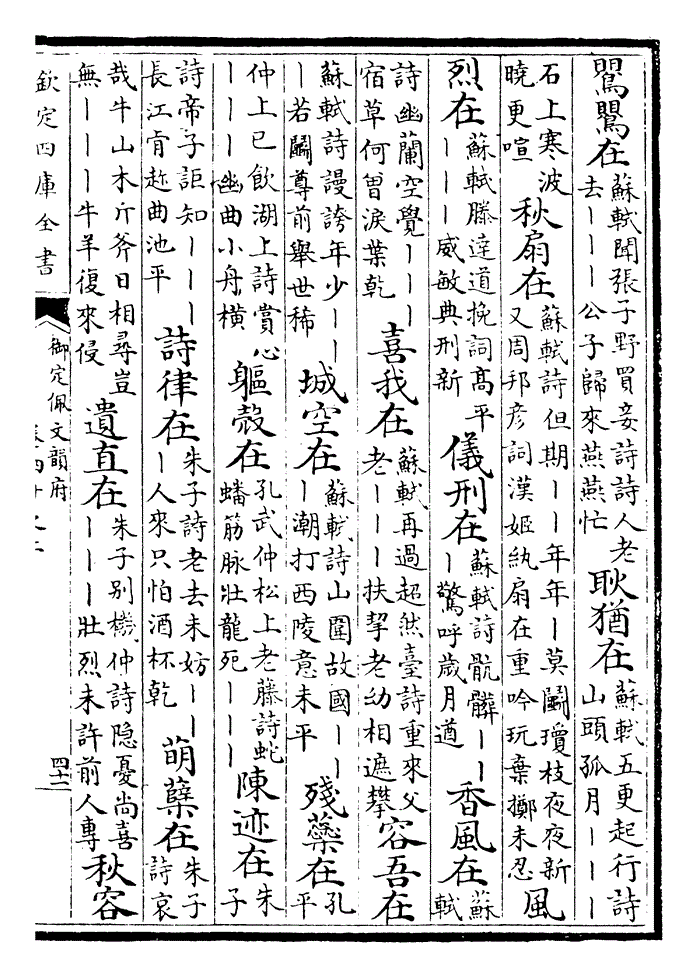 鸎鸎在蘇軾聞張子野買妾詩詩人老去｜｜｜公子歸來燕燕忙耿猶在蘇軾五更起行詩山頭孤月｜｜｜
石上寒波曉更喧秋扇在蘇軾詩但期｜｜年年｜莫鬭瓊枝夜夜新又周邦彦詞漢姬紈扇在重吟玩棄擲未忍風
烈在蘇軾滕達道挽詞髙平｜｜｜威敏典刑新儀刑在蘇軾詩骯髒｜｜｜驚呼歲月遒香風在蘇軾
詩幽蘭空覺｜｜｜宿草何曽淚葉乾喜我在蘇軾再過超然臺詩重來父老｜｜｜扶挈老幼相遮攀容吾在
蘇軾詩謾誇年少｜｜｜若鬭尊前舉世稀城空在蘇軾詩山圍故國｜｜｜潮打西陵意未平殘藥在孔平
仲上已飲湖上詩賞心｜｜｜幽曲小舟橫軀殻在孔武仲松上老藤詩蛇蟠筋脉壯龍死｜｜｜陳迹在朱子
詩帝子詎知｜｜｜長江肯趂曲池平詩律在朱子詩老去未妨｜｜｜人來只怕酒杯乾萌蘖在朱子詩哀
哉牛山木斤斧日相尋豈無｜｜｜牛羊復來侵遺直在朱子别機仲詩隐憂尚喜｜｜｜壯烈未許前人專秋容
欽定四庫全書
御定佩文韻府
四十二